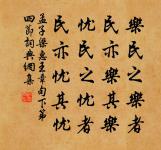 樂民之樂者
民亦樂其樂
忧民之忧者
民亦忧其忧
孟子梁惠王章句下第
四節詞典網集